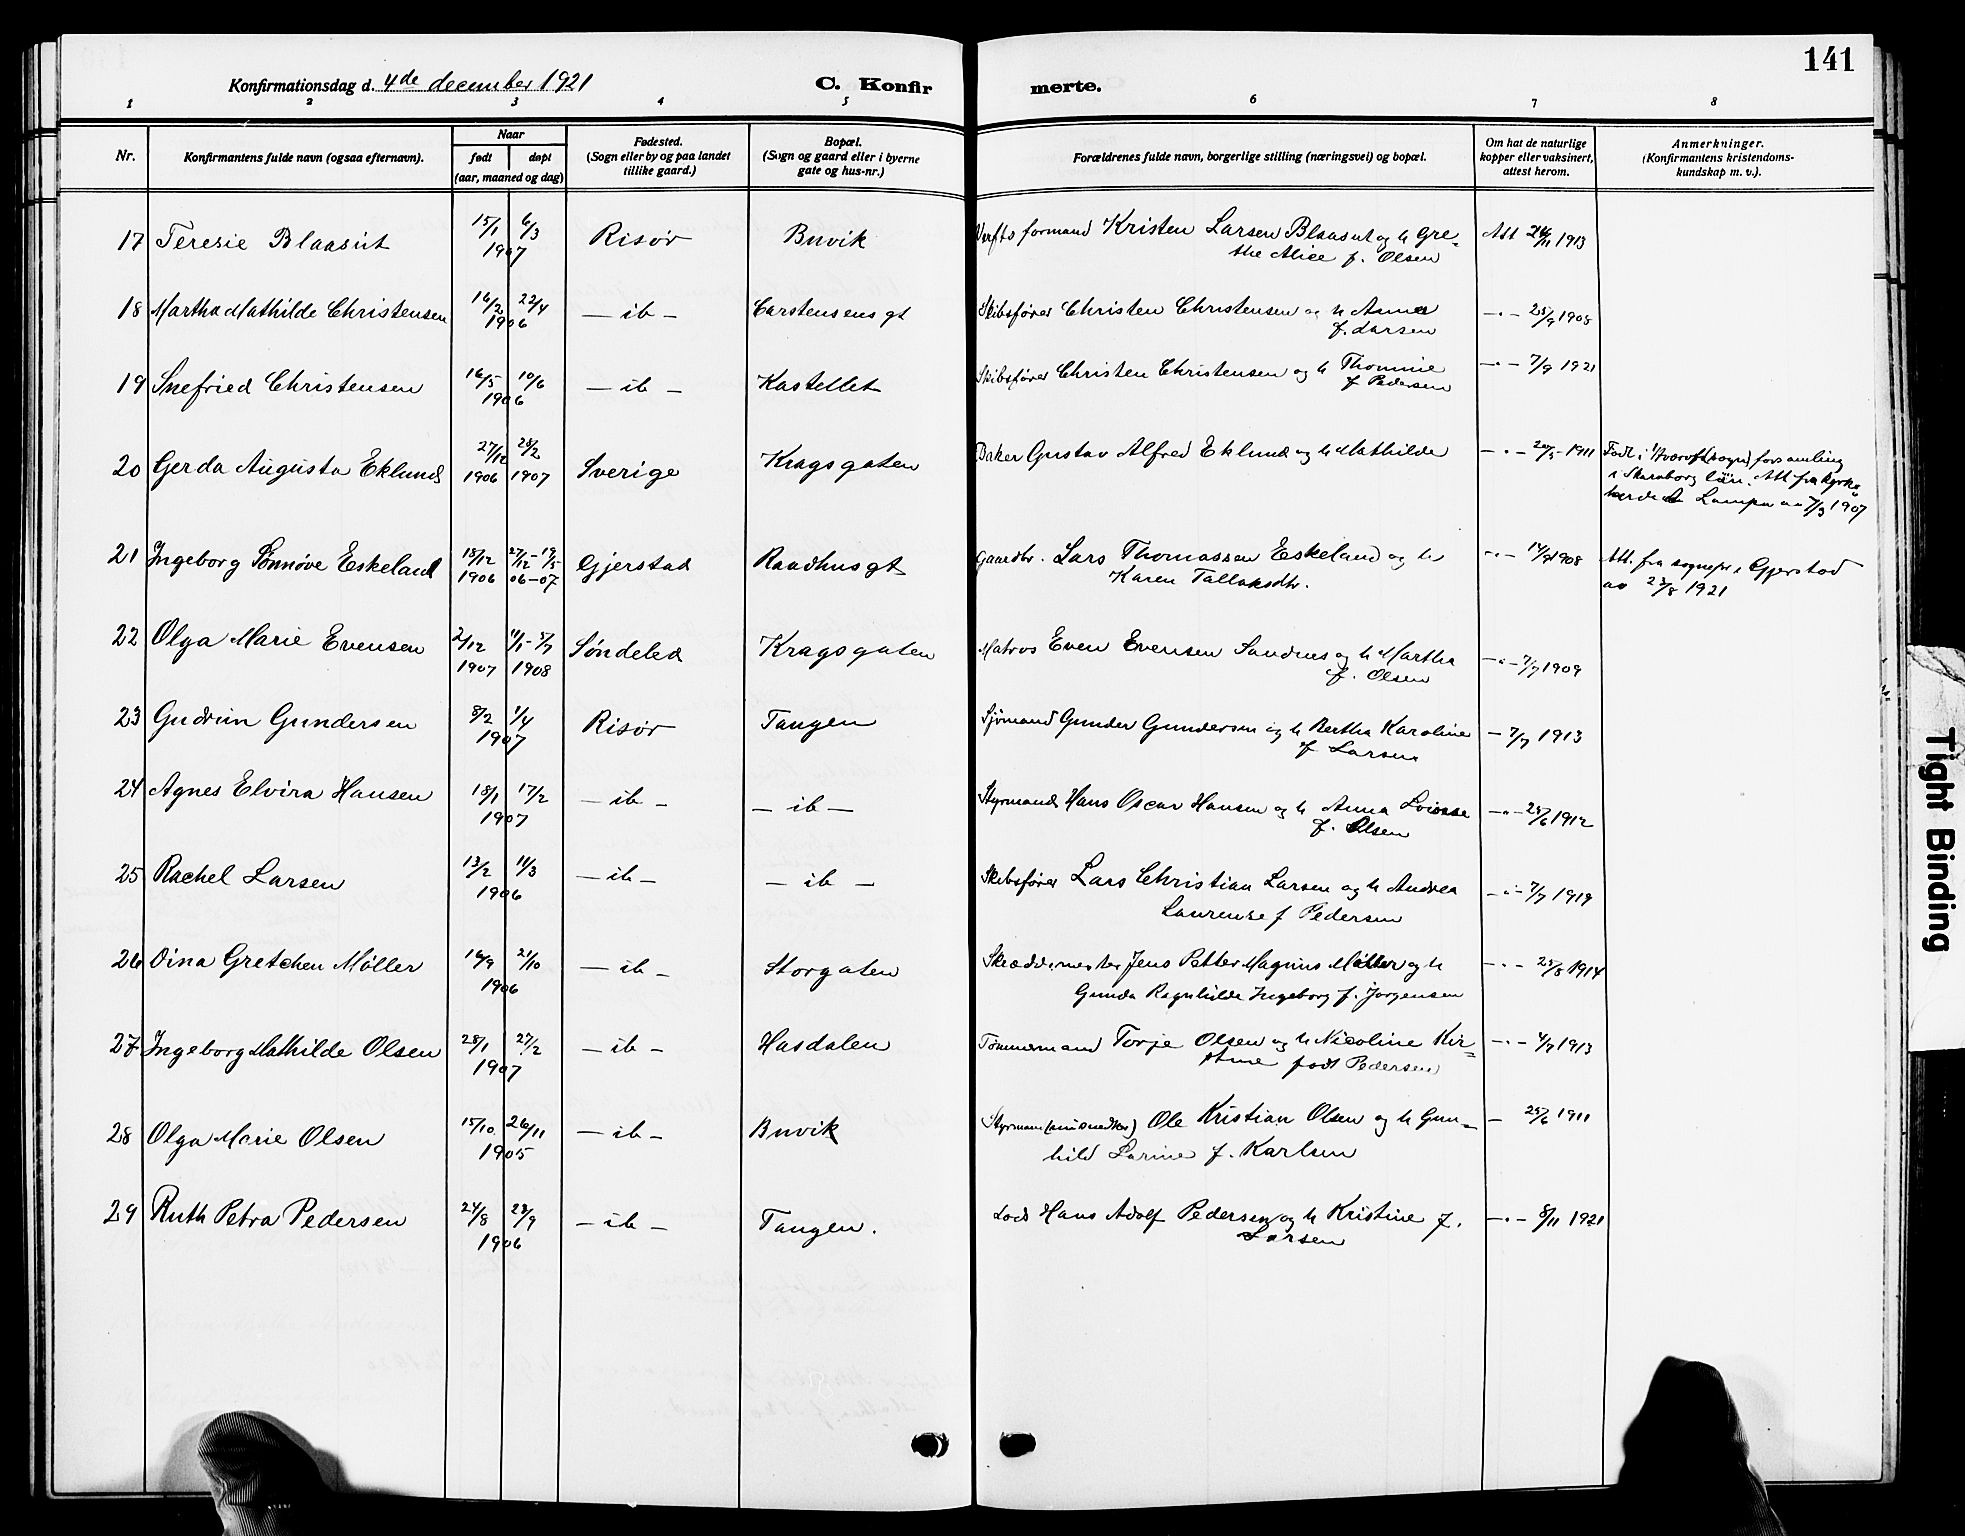 141
Konfirmationsdag d. 4de december 1921 C. Konfirmerte.
1 2 3 4 5 6 7 8
Nr. Konfirmantens fulde navn (ogsaa efternavn). Naar født døpt (aar, maaned og dag) Fødested. (Sogn eller by og paa landet tillike gaard.) Bopæl. (Sogn og gaard eller i byerne gate og hus-nr.) Forældrenes fulde navn, borgerlige stilling (næringsvei) og bopæl. Om hat de naturlige kopper eller vaksinert, attest herom. Anmerkninger. (Konfirmantens kristendomskundskap m. v.).
17 Teresie Blaasut 15/1 6/3 1907 Risør Buvik Verfts formand Kristen Larsen Blaasut og h Gre=
the Alice f. Olsen Att 24/11 1913
18 Martha Mathilde Christensen 16/2 22/4 1906 — ib — Carstensens gt Skibsfører Christen Christensen og h Anna
f. Larsen —〃— 25/9 1908
19 Snefried Christensen 16/5 10/6 1906 — ib — Kastellet Skibsfører Christen Christensen og h Thomine
f Pedersen —〃— 7/9 1921
20 Gerda Augusta Eklund 27/12 1906 28/2 1907 Sverige Kragsgaten Baker Gustav Alfred Eklund og h Mathilde —〃— 20/5 1911 Født i (sogn) forsamling
i Skaraborg län. Att fra Kyrko
herde Lampa av 7/3 1907
21 Ingeborg Sønnøve Eskeland 18/12 1906 27/12 - 19/5 06-07 Gjerstad Raadhusgt Gaardbr. Lars Thomassen Eskeland og h
Karen Tallaksdtr. —〃— 14/9 1908 Att. fra sognepr i Gjerstad
av 23/8 1921
22 Olga Marie Evensen 2/12 1907 11/1 - 5/7 1908 Søndeled Kragsgaten Matros Even Evensen Sandnes og h Martha
f. Olsen —〃— 7/7 1909
23 Gudrun Gundersen 8/2 1/4 1907 Risør Tangen Sjømand Gunder Gundersen og h Bertha Karoline
f Larsen — 7/7 1913
24 Agnes Elvira Hansen 18/1 17/2 1907 — ib — — ib — Styrmand Hans Oscar Hansen og h Anna Lovisse
f. Olsen —〃— 25/6 1912
25 Rachel Larsen 13/2 11/3 1906 — ib — — ib — Skibsfører Lars Christian Larsen og h Andrea
Laurense f Pedersen —〃— 7/7 1919
26 Dina Gretchen Møller 16/9 21/10 1906 — ib — Storgaten Skræddermester Jens Petter Magnus Møller og h
Gunda Ragnhilde Ingeborg f. Jørgensen —〃— 25/8 1914
27 Ingeborg Mathilde Olsen 28/1 27/2 1907 — ib — Hasdalen Tømmermand Torje Olsen og h Nicoline Kir=
stine født Pedersen —〃— 4/7 1913
28 Olga Marie Olsen 15/10 26/11 1905 — ib — Buvik Styrmand Ole Kristian Olsen og h Gun=
hild Larine f. Karlsen — 25/6 1911
29 Ruth Petra Pedersen 24/8 23/9 1906 — ib — Tangen. Lods Hans Adolf Pedersen og h Kristine f.
Larsen —〃— 8/11 1921
Tight Binding